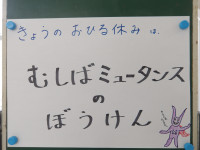 きょうの おひる休みは、
むしばミュータンス
の
ぼうけん